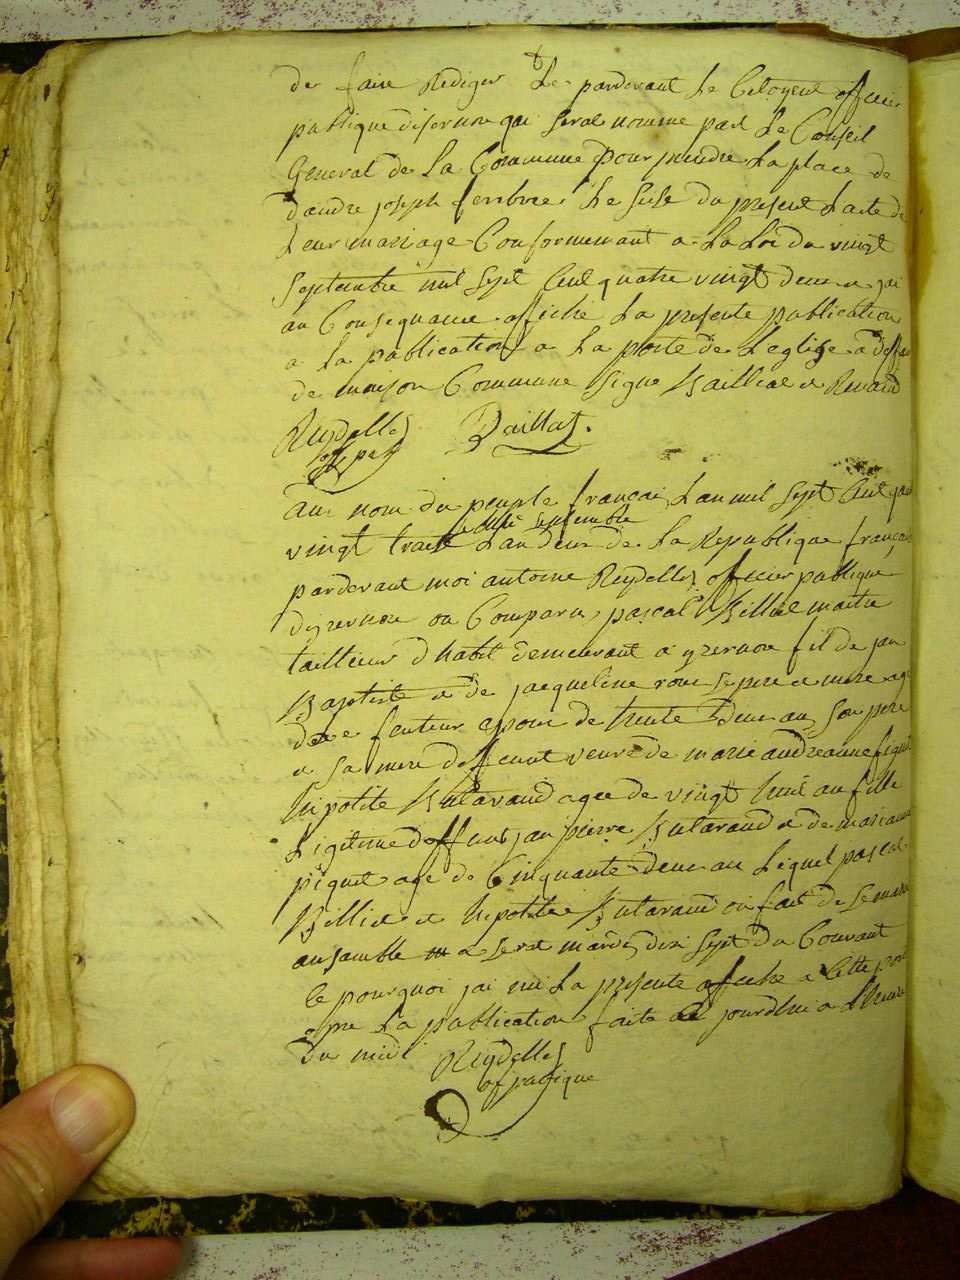 de faire Rediger Le pardevant Le Citoyent officier
publique disernon qui Serat nomme part Le Conseil
General de La Commune pour prendre La place de
dandre joseph Le susd du present Lacte de
Leur mariage Conformemant a La Loi du vingt
Septembre mil Sept Cent quatre vingt deux et jai
an Consequance affiche La presente publication
a La publication a La porte de Leglise a deffau
de maison Commune Signe Bailliat et Renaud
Reydellet Baillat.
off pu
au nom du peuple francai Lan mil Sept Cent qua
le dusé septembre
vingt traise Lan deux de La Republique francai
pardevant moi antoine Reydellet officier publique
dizernon on Comparu pascal Billiet maitre
tailleur dhabit demeurant a yzernon fil de jan
Baptiste et de jacqueline roux Se pere et mere age
de trente deux an Son pere
et Sa mere deffeunt veuve de marie andreanne
hipolite Butavaud agee de vingt huit an fille
Ligitime deffunt jan pierre Butavaud et de mariane
piquet age de Cinquante deux an Lequel pascal
Billiet et hipolite Butavaud on fait de Se marie
ansamble a Serat mardi dix Sept du Courant
Ce pourquoi jai mi La presente affiche a Cette porte
apre La publication faite au jourdhui a Lheure
Du midi
Reydellet
of publique